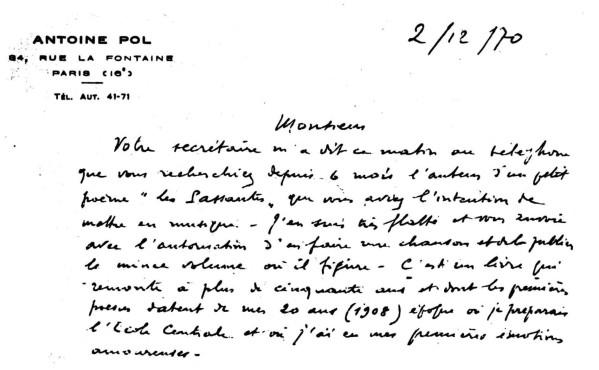 ANTOINE POL
64, RUE LA FONTAINE
PARIS (16e)
TÉL. AUT. 41-71
2/12/70
Monsieur
Votre secrétaire m'a dit ce matin au téléphone
que vous recherchiez depuis 6 mois l'auteur d'un petit
poème "les Passantes", que vous aviez l'intention de
mettre en musique - J'en suis très flatté et vous envoie
avec l'autorisation d'en faire une chanson et de la publier
le mince volume où il figure - C'est un livre qui
remonte à plus de cinquante ans et dont les premières
poésies datent de mes 20 ans (1908) époque où je préparais
l'Ecole Centrale et où j'ai eu mes premières émotions
amoureuses -